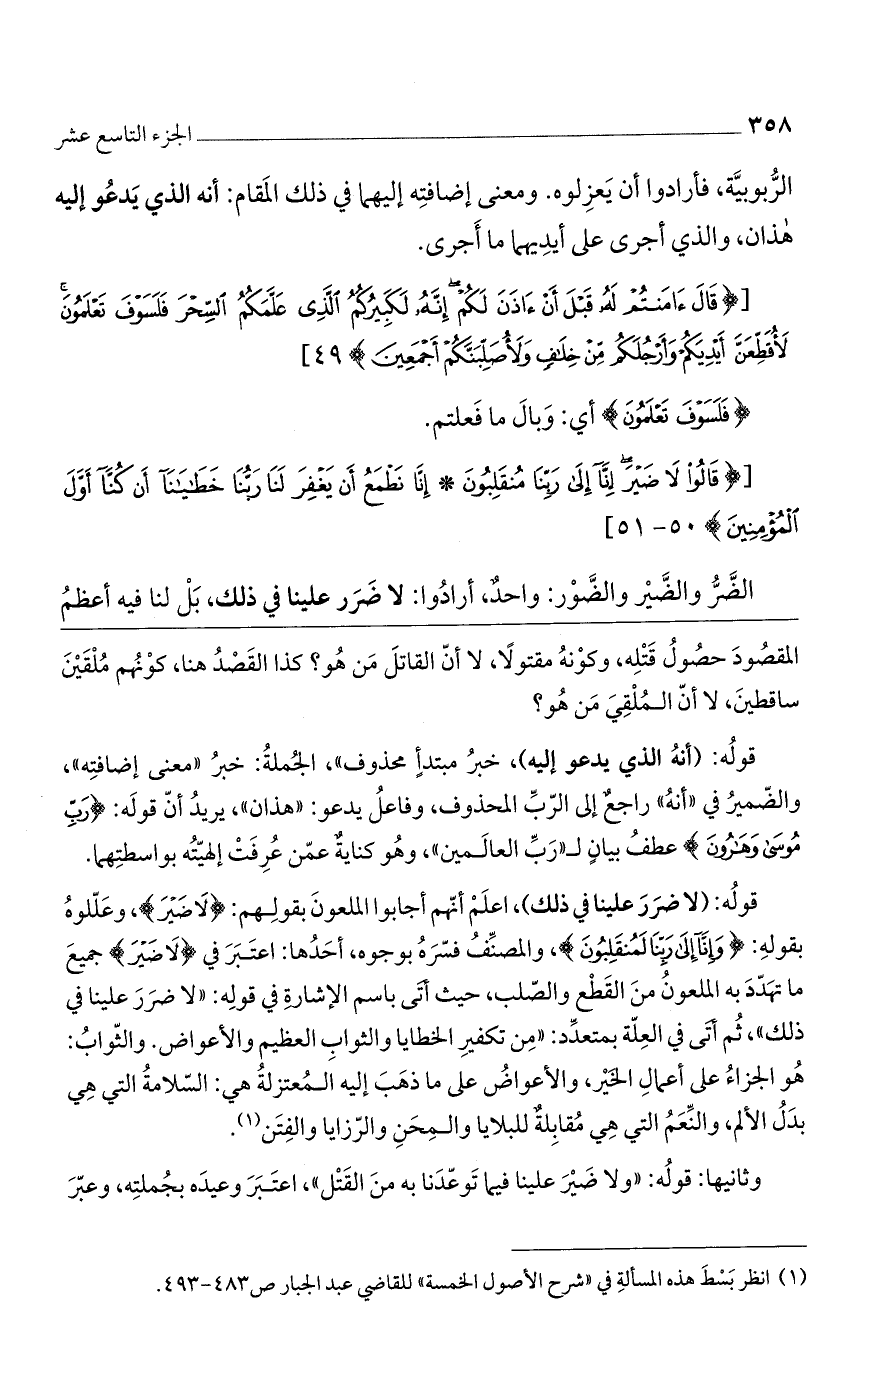 ٣٥٨ الجزء التاسع عشر
الرُّبوبيَّة، فأرادوا أن يَعزِلوه. ومعنى إضافتِه إليهما في ذلك المَقام: أنه الذي يَدعُو إليه
هٰذان، والذي أجرى على أيدِيهما ما أَجرى.
[﴿قَالَ ءَامَنتُمْ لَهُۥ قَبْلَ أَنْ ءَاذَنَ لَكُمْ ۖ إِنَّهُۥ لَكَبِيرُكُمُ ٱلَّذِى عَلَّمَكُمُ ٱلسِّحْرَ فَلَسَوْفَ تَعْلَمُونَ ۚ
لَأُقَطِّعَنَّ أَيْدِيَكُمْ وَأَرْجُلَكُم مِّنْ خِلَٰفٍ وَلَأُصَلِّبَنَّكُمْ أَجْمَعِينَ﴾ ٤٩]
﴿فَلَسَوْفَ تَعْلَمُونَ﴾ أي: وَبالَ ما فَعلتم.
[﴿قَالُوا۟ لَا ضَيْرَ ۖ إِنَّآ إِلَىٰ رَبِّنَا مُنقَلِبُونَ * إِنَّا نَطْمَعُ أَن يَغْفِرَ لَنَا رَبُّنَا خَطَٰيَٰنَآ أَن كُنَّآ أَوَّلَ
ٱلْمُؤْمِنِينَ﴾ ٥٠-٥١]
الضَّرُّ والضَّيْر والضَّوْر: واحدٌ، أرادُوا: لا ضَرَر علينا في ذلك، بَلْ لنا فيه أعظمُ
المقصُودَ حصُولُ قَتْلِه، وكوْنهُ مقتولًا، لا أنّ القاتلَ مَن هُو؟ كذا القَصْدُ هنا، كوْنُهم مُلْقَيْنَ
ساقطينَ، لا أنّ الـمُلْقِيَ مَن هُو؟
قولُه: (أنهُ الذي يدعو إليه)، خبرُ مبتدأٍ محذوف»، الجُملةُ: خبرُ «معنى إضافتِه»،
والضّميرُ في «أنهُ» راجعٌ إلى الرّبِّ المحذوف، وفاعلُ يدعو: «هذان»، يريدُ أنّ قولَه: ﴿رَبِّ
مُوسَىٰ وَهَٰرُونَ﴾ عطفُ بيانٍ لـ«رَبِّ العالَـمين»، وهُو كنايةٌ عمّن عُرِفَتْ إلهيّتُه بواسطتِهما.
قولُه: (لا ضرَرَ علينا في ذلك)، اعلَمْ أنّهم أجابوا الملعونَ بقولِـهم: ﴿لَا ضَيْرَ﴾، وعَلّلوهُ
بقولهِ: ﴿وَإِنَّآ إِلَىٰ رَبِّنَا لَمُنقَلِبُونَ﴾، والمصنِّفُ فسّرَهُ بوجوه، أحَدُها: اعتـبَرَ في ﴿لَا ضَيْرَ﴾ جميعَ
ما تهدّدَ به الملعونُ منَ القَطْع والصّلب، حيث أتَى باسم الإشارةِ في قولِه: «لا ضرَرَ علينا في
ذلك»، ثُم أتَى في العِلّة بمتعدِّد: «مِن تكفيرِ الخطايا والثوابِ العظيم والأعواض. والثّوابُ:
هُو الجزاءُ على أعمالِ الخَيْر، والأعواضُ على ما ذهَبَ إليه الـمُعتزلةُ هي: السّلامةُ التي هِي
بدَلُ الألم، والنِّعَمُ التي هِي مُقابِلةٌ للبلايا والـمِحَنِ والرّزايا والفِتَن(١).
وثانيها: قولُه: «ولا ضَيْرَ علينا فيما تَوعّدَنا به منَ القَتْل»، اعتَـبَرَ وعيدَه بجُملتِه، وعبّرَ
(١) انظر بَسْطَ هذه المسألةِ في «شرح الأصول الخمسة» للقاضي عبد الجبار ص٤٨٣-٤٩٣.